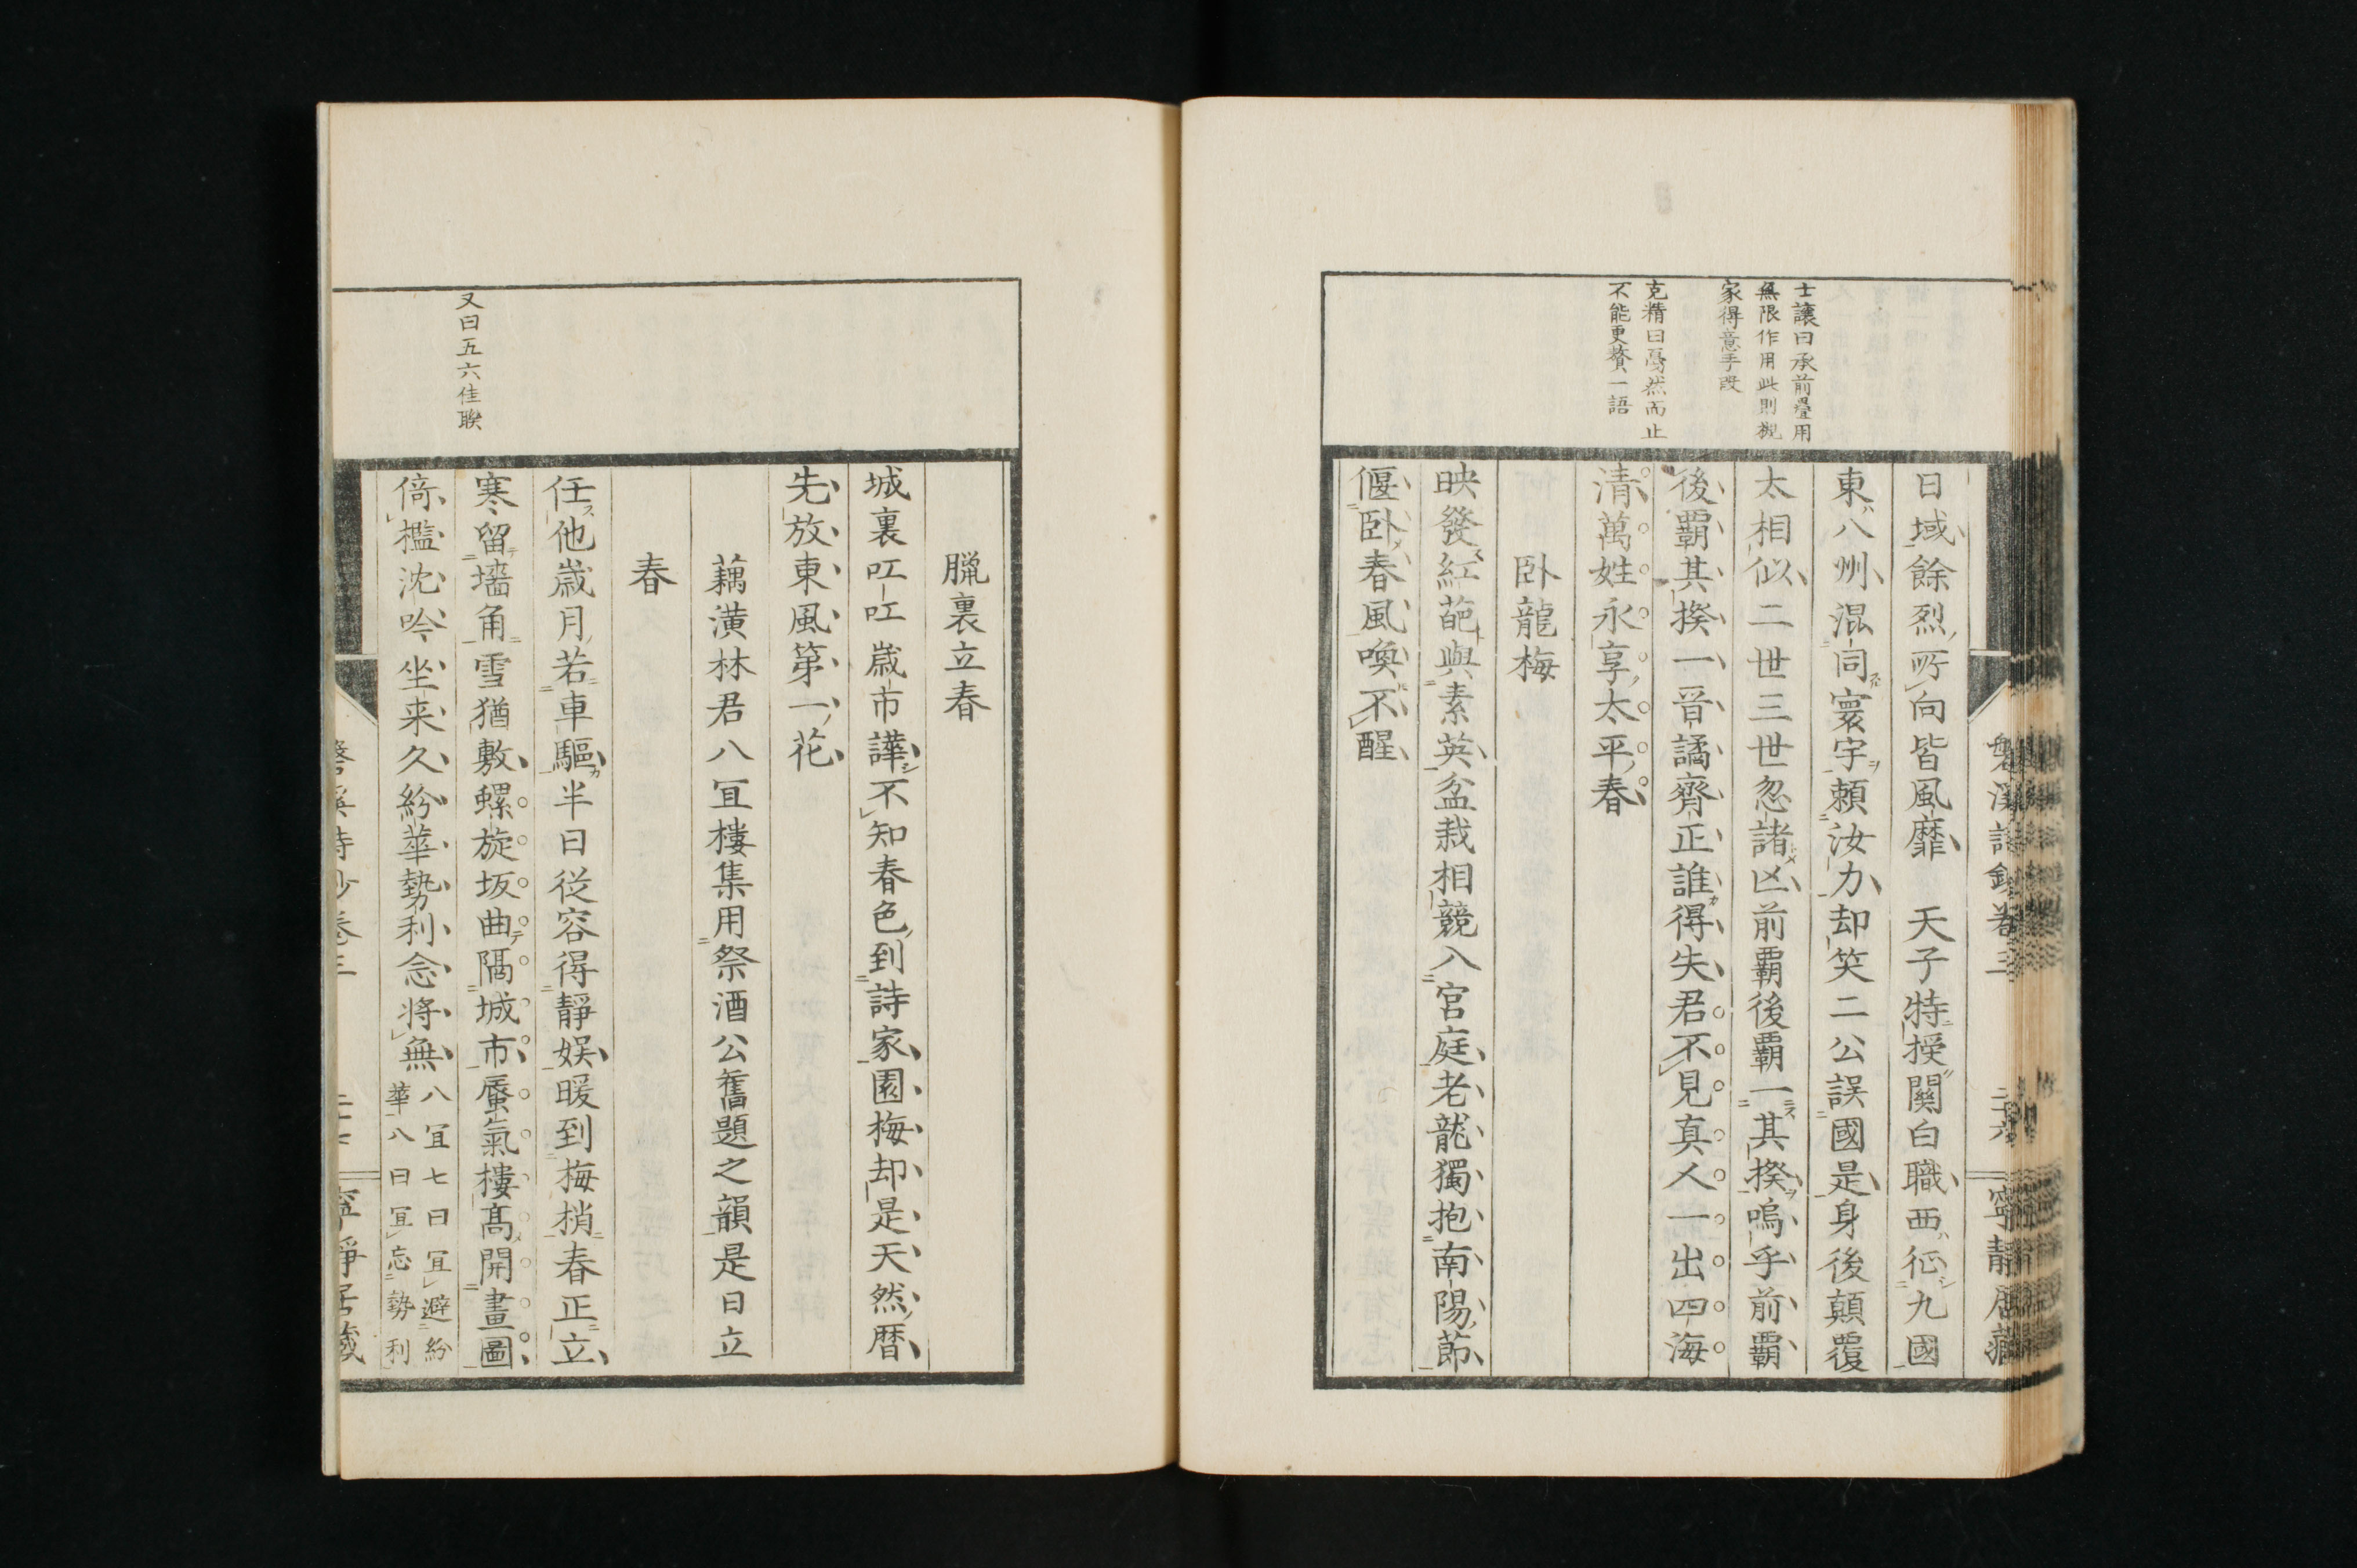 士讓曰承前疊用
無限作用此則觀
家得意手段
克精曰戞然而止
不能更贅一語
日域餘烈所向皆風靡　天子特授關白職西征九國
東八州混同寰宇賴汝力却笑二公誤國是身後顛覆
太相似二世三世忽諸凶前霸後霸一其揆嗚乎前霸
後霸其揆一晉譎齊正誰得失君不見真人一出四海
清萬姓永享太平春
臥龍梅
映發紅葩與素英盆栽相競入宮庭老龍獨抱南陽節
偃臥春風喚不醒
磐溪詩鈔卷三
二十六
寧靜居藏
又曰五六佳聯
臘裏立春
城裏吅吅歲市譁不知春色到詩家園梅却是天然曆
先放東風第一花
藕潢林君八宜樓集用祭酒公舊題之韻是日立
春
任他歲月若車驅半日從容得靜娛暖到梅梢春正立
寒留墻角雪猶敷螺旋坂曲隔城市蜃氣樓高開畫圖
倚檻沈吟坐来久紛華勢利念將無
八宜七曰宜避紛
華八曰宜忘勢利